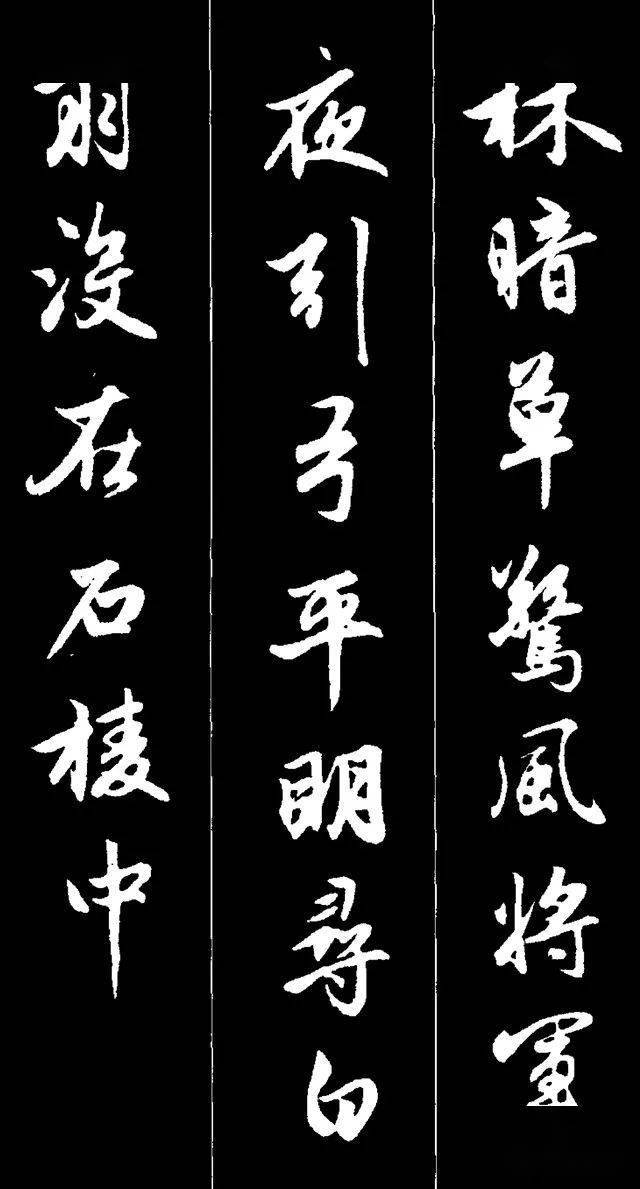 林暗草驚風將軍
夜引弓平明尋白
羽没在石稜中